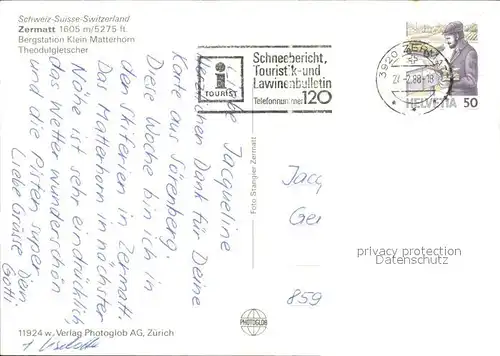 Schweiz-Suisse-Switzerland
Zermatt 1605 m/5275 ft.
Bergstation Klein Matterhorn
Theodulgletscher
i
TOURIST
Schneebericht,
Touristik-und
Lawinenbulletin
Telefonnummer 120
3920 ZERMATT
24-2.88-18
HELVETIA 50
Liebe Jacqueline
Herzlichen Dank für Deine
Karte aus Sörenberg.
Diese Woche bin ich in
den Skiferien in Zermatt.
Das Matterhorn in nächster
Nähe ist sehr eindrücklich
das Wetter wunderschön
und die Pisten super
Liebe Grüsse Dein
Gotti
Foto Stangier Zermatt
Jacq
Ger
859
privacy protection
www.ansichtskarten-lexikon.de
PHOTOGLOB
11924 w. Verlag Photoglob AG, Zürich